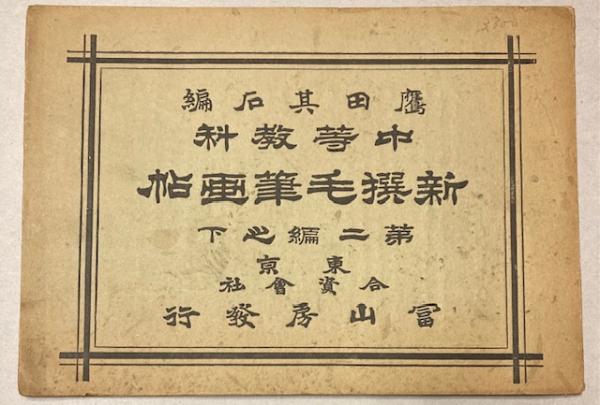 鷹田其石編
中等教科
新撰毛筆画帖
第二編之下
東京
合資會社
冨山房發行